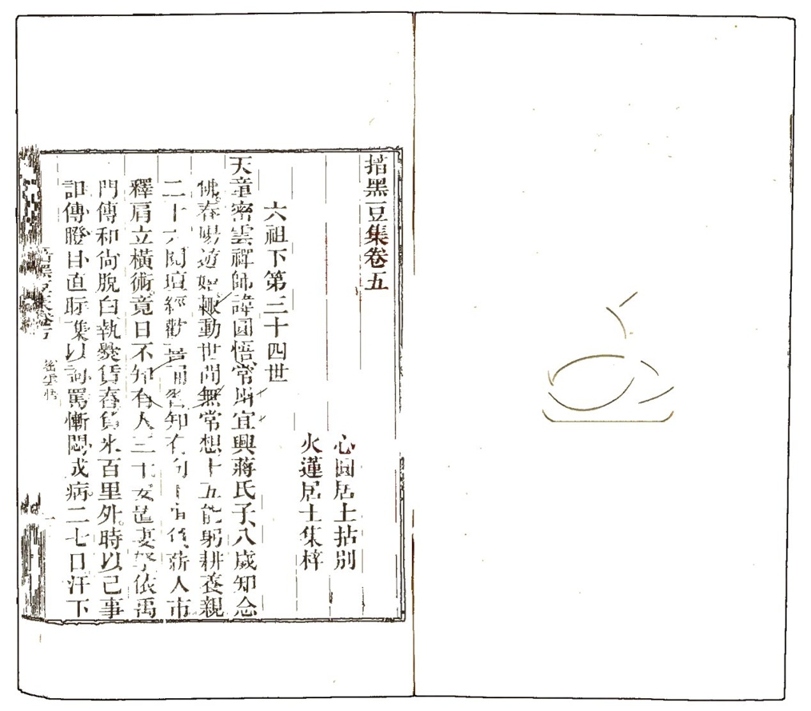 揞黑豆集卷五
心圓居士拈別
火蓮居士集梓
六祖下第三十四世
天童密雲禪師諱圓悟常州宜興蔣氏子八歲知念
佛春陽遊 輒動世間無常想十五能躬耕養親
二十六閱壇經 知有向 貨薪入市
釋肩立橫術竟日不知有人三十 妻孥依禹
門傳和尚脫白執爨賃舂負米百里外時以己事
詰傳瞪目直眎 以詬罵慚悶成病二七日汗下